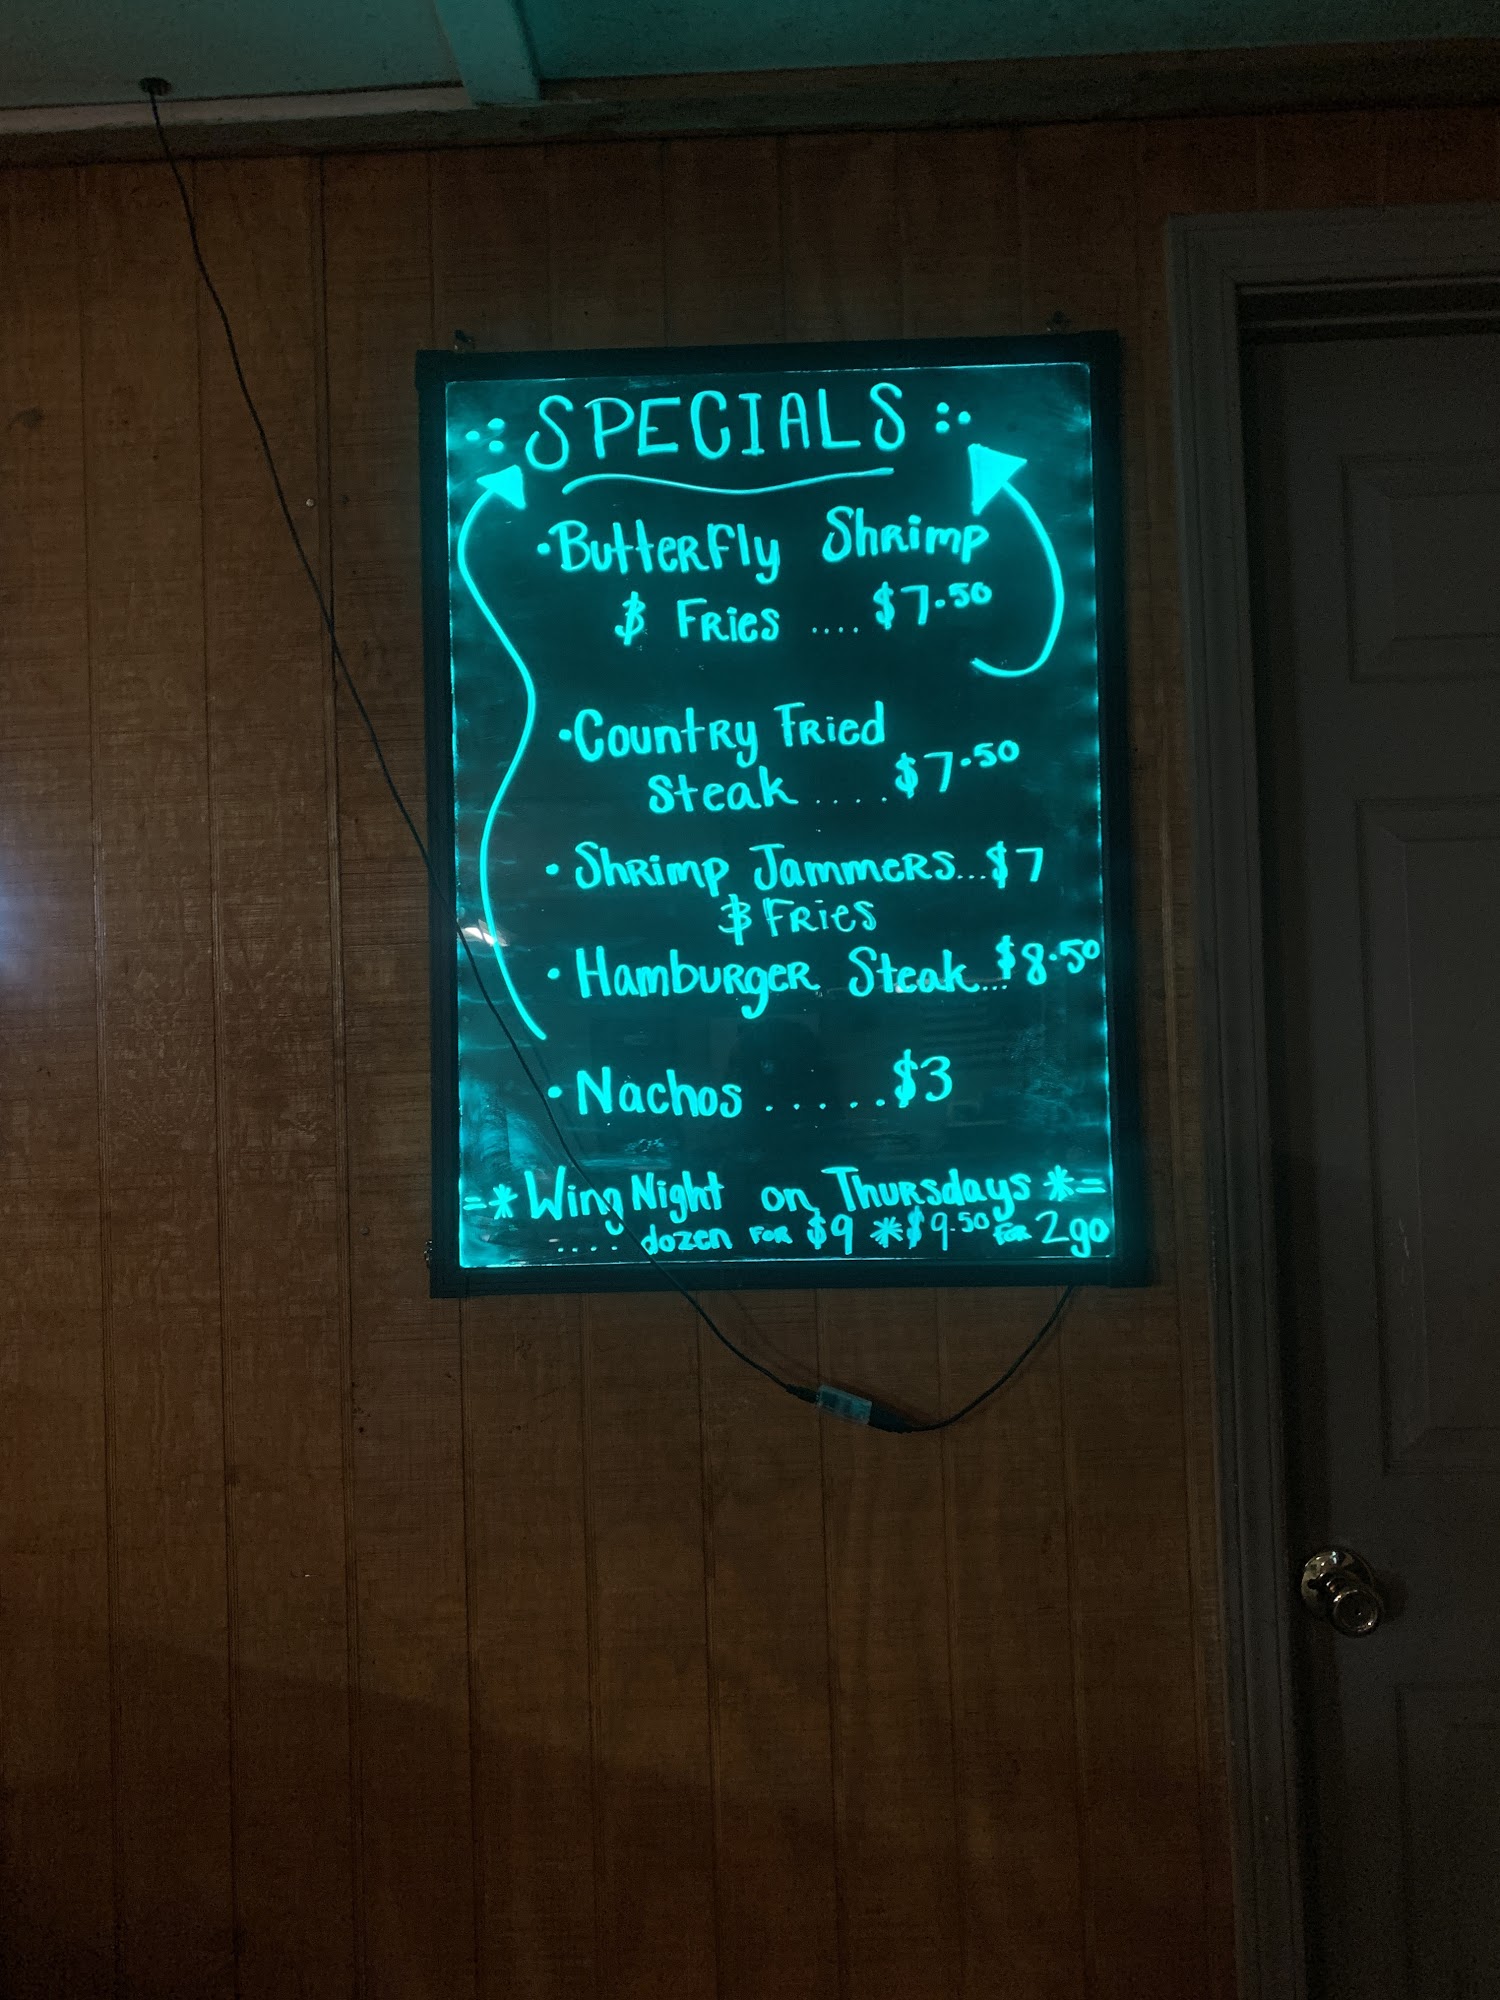 SPECIALS
• Butterfly Shrimp
& Fries .... $7.50
• Country Fried
Steak ..... $7.50
• Shrimp Jammers...$7
& Fries
• Hamburger Steak...$8.50
• Nachos ......$3
=* Wing Night on Thursdays *=
.... dozen for $9 *$9.50 for 2go